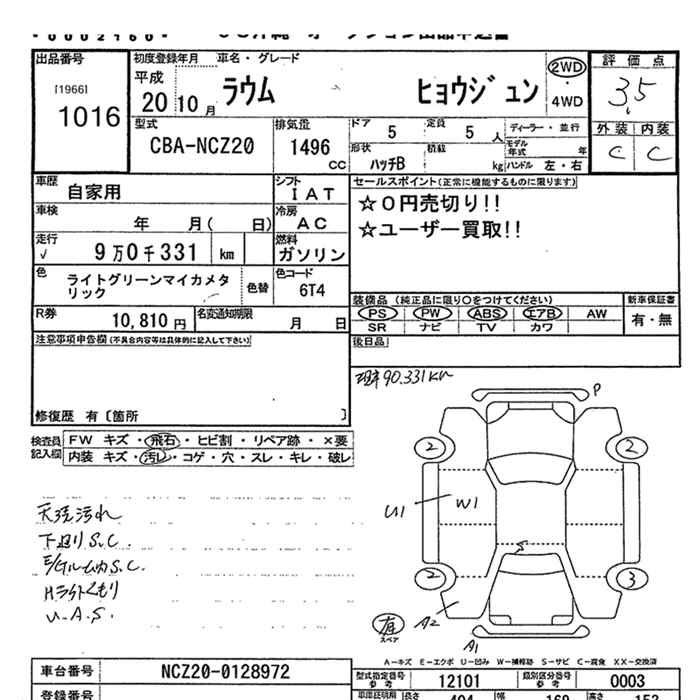 出品番号
[1966]
1016
初度登録年月 車名・グレード
平成
20 10月 ラウム ヒョウジュン
2WD
4WD
評価点
3.5
外装 内装
C C
型式
CBA-NCZ20
排気量
1496
CC
ドア 5 定員 5 人
形状 ハッチB 積載 kg
ディーラー・並行
モデル年式 年
ハンドル 左・右
車歴 自家用
シフト IAT
車検 年 月( 日)
冷房 AC
走行 √ 9万0千331 km
燃料 ガソリン
色 ライトグリーンマイカメタリック
色替
色コード 6T4
R券 10,810円
名変通知期限 月 日
セールスポイント(正常に機能するものに限ります)
☆0円売切り!!
☆ユーザー買取!!
装備品 (純正品に限り○をつけてください)
新車保証書
PS PW ABS エアB AW
有・無
SR ナビ TV カワ
後日品
注意事項申告欄(不具合内容等は具体的に記入して下さい)
修復歴 有〔箇所 〕
現車90.331km
検査員記入欄
FW キズ・飛石・ヒビ割・リペア跡・×要
内装 キズ・汚レ・コゲ・穴・スレ・キレ・破レ
天張汚れ
下廻りS.C.
E/gルーム内S.C.
Hライトくもり
U.A.S.
P
2 2
U1 W1
S
2 3
有
スペア
A2
A1
A-キズ E-エクボ U-凹み W-補修跡 S-サビ C-腐食 XX-交換済
車台番号 NCZ20-0128972
型式指定番号 参考 12101
類別区分番号 参考 0003
登録番号
車車証明規
長さ 幅 高さ